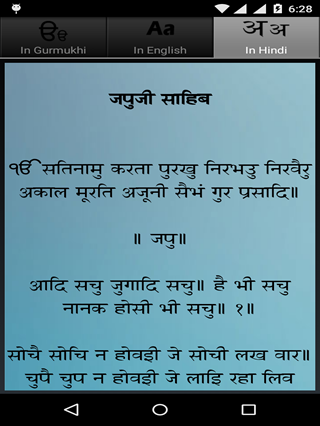 6:28
ੳੳ
Aa
अ अ
In Gurmukhi
In English
In Hindi
जपुजी साहिब
ੴ सतिनामु करता पुरखु निरभउ निरवैरु
अकाल मूरति अजूनी सैभं गुर प्रसादि॥
॥ जपु॥
आदि सचु जुगादि सचु॥ है भी सचु
नानक होसी भी सचु॥ १॥
सोचै सोचि न होवई जे सोची लख वार॥
चुपै चुप न होवई जे लाइ रहा लिव